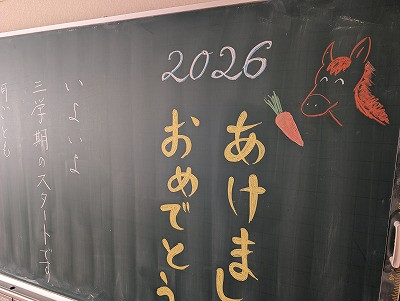 2026
あけまし
おめでとう
いよいよ
三学期のスタートです
何ごとも